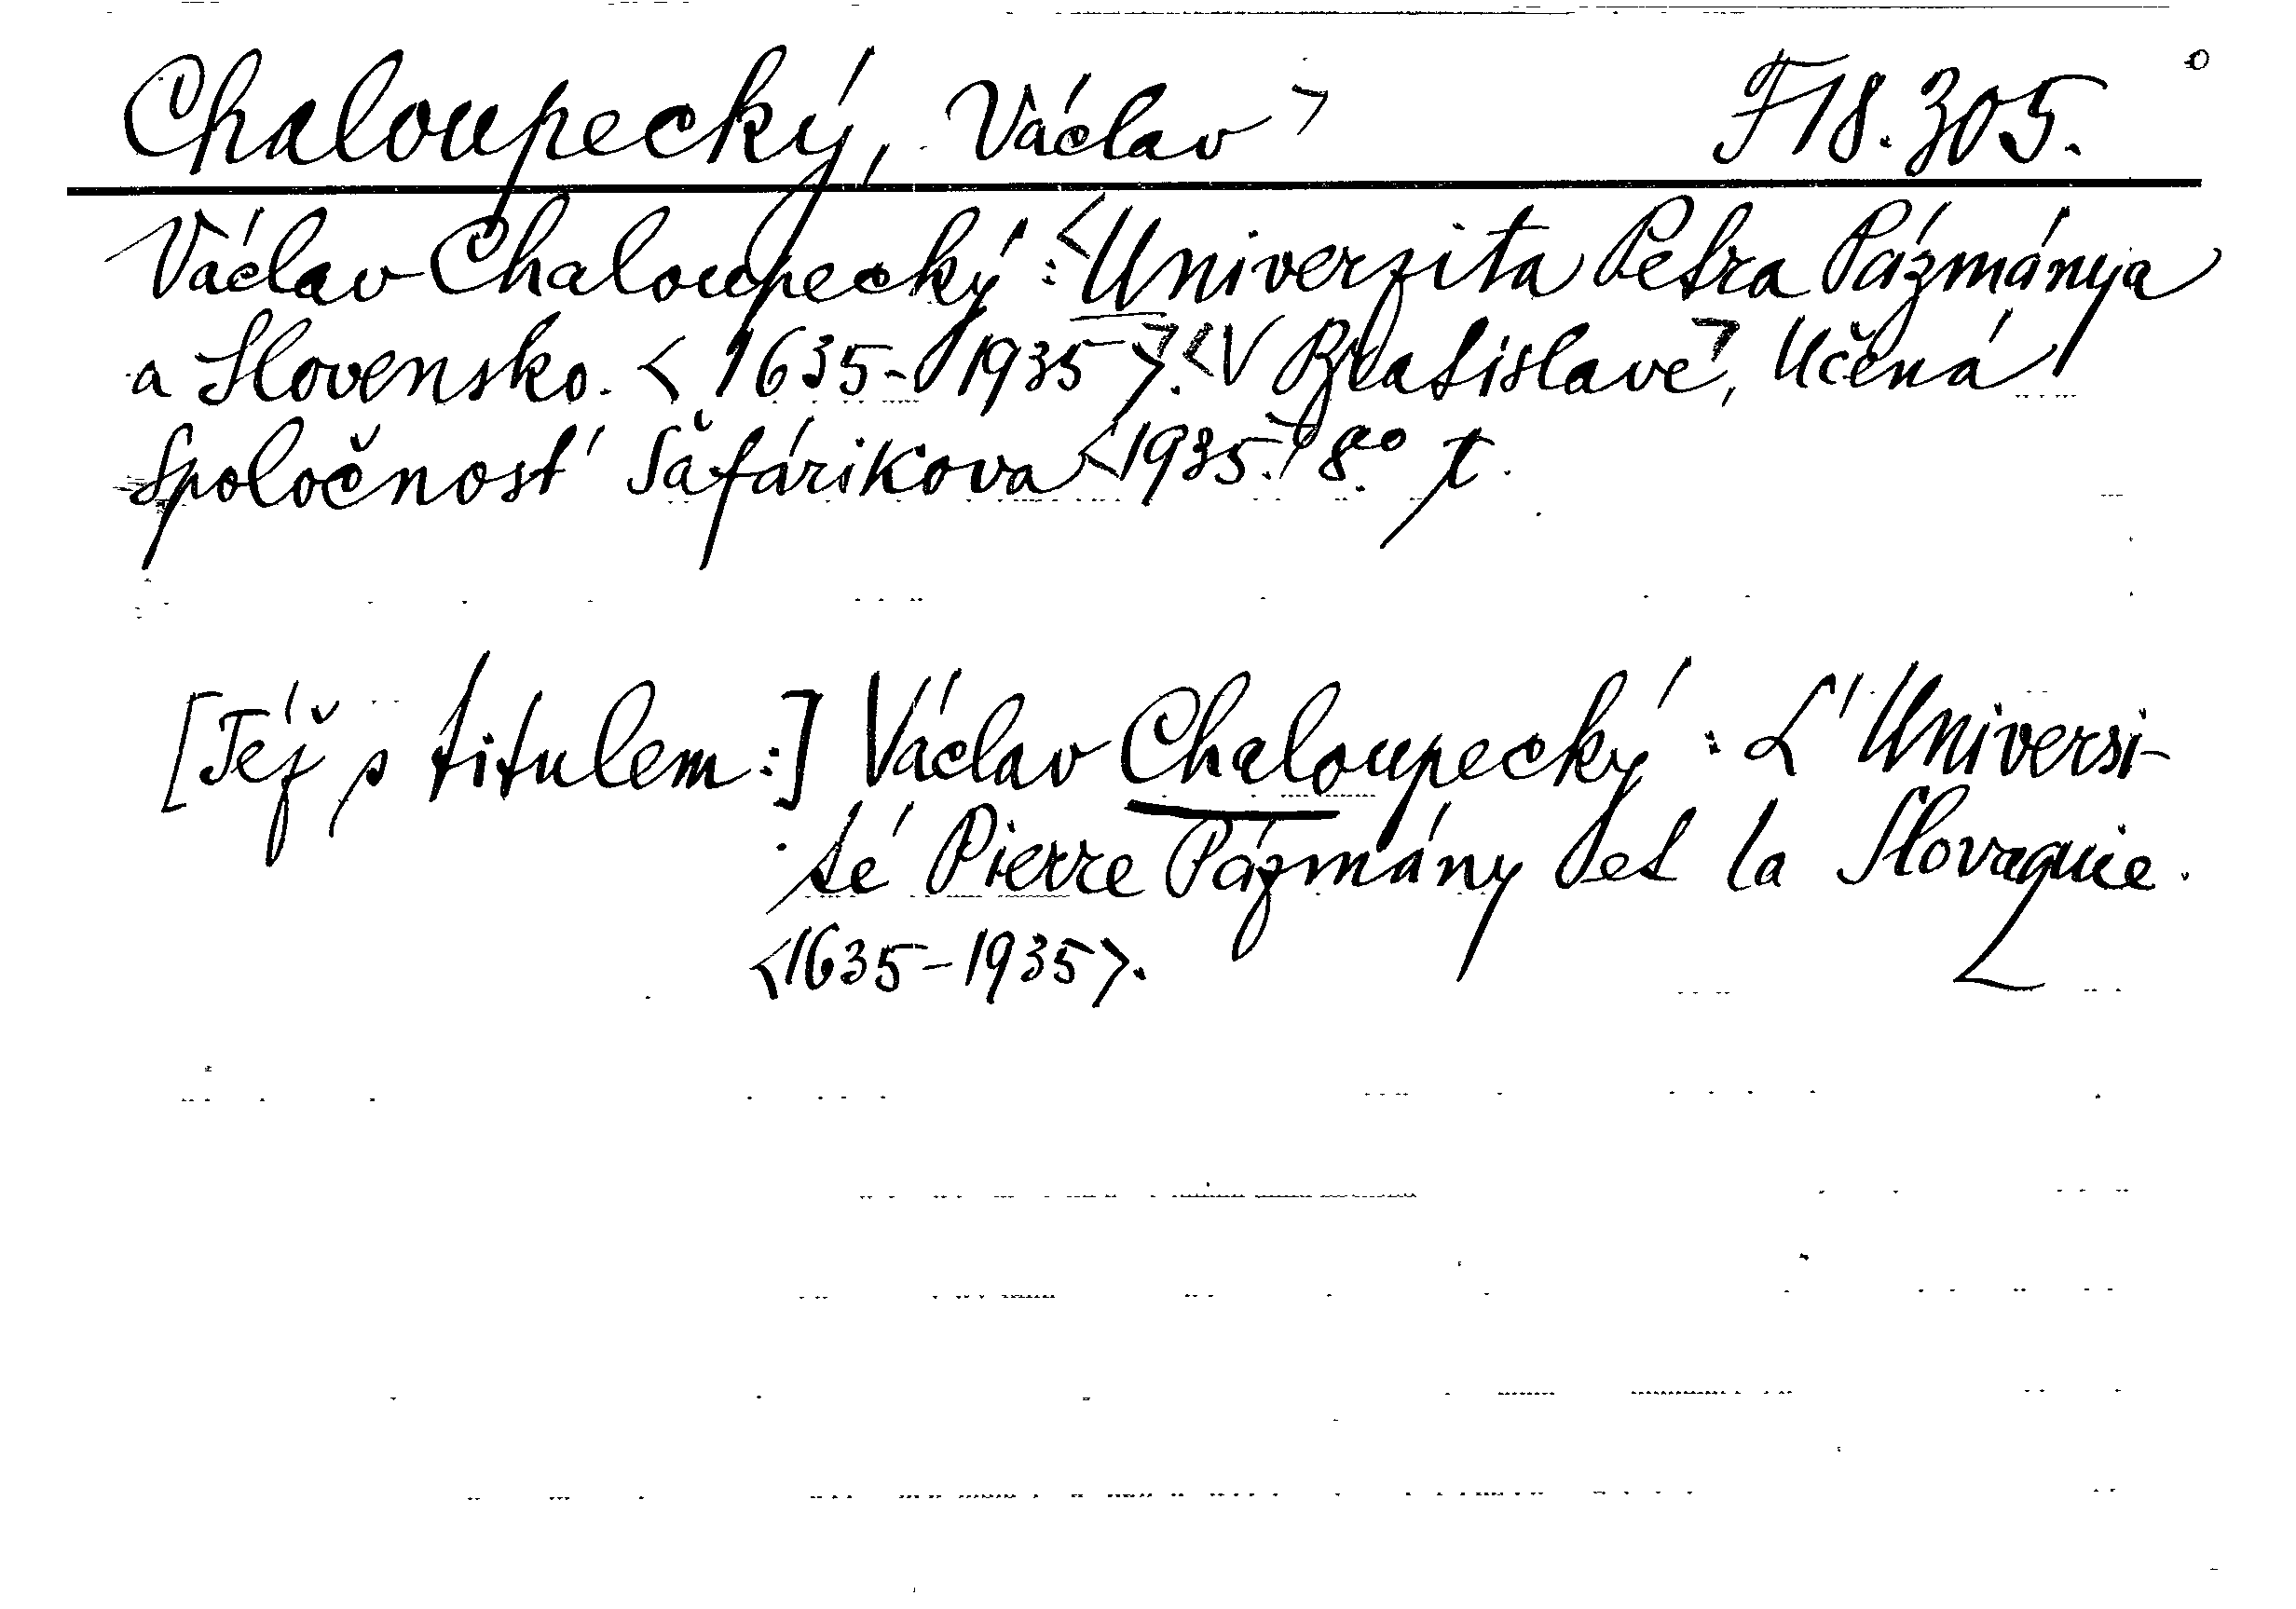 Chaloupecký, Václav > F 18.305.
Václav Chaloupecký: <Univerzita Petra Pázmánya
a Slovensko. <1635-1935>.> <V Bratislavě>, Učená
Společnosť Šafárikova <1935.> 8° t.
[Též s titulem:] Václav Chaloupecký: L'Universi-
té Pierre Pázmány et la Slovaquie.
<1635-1935>.